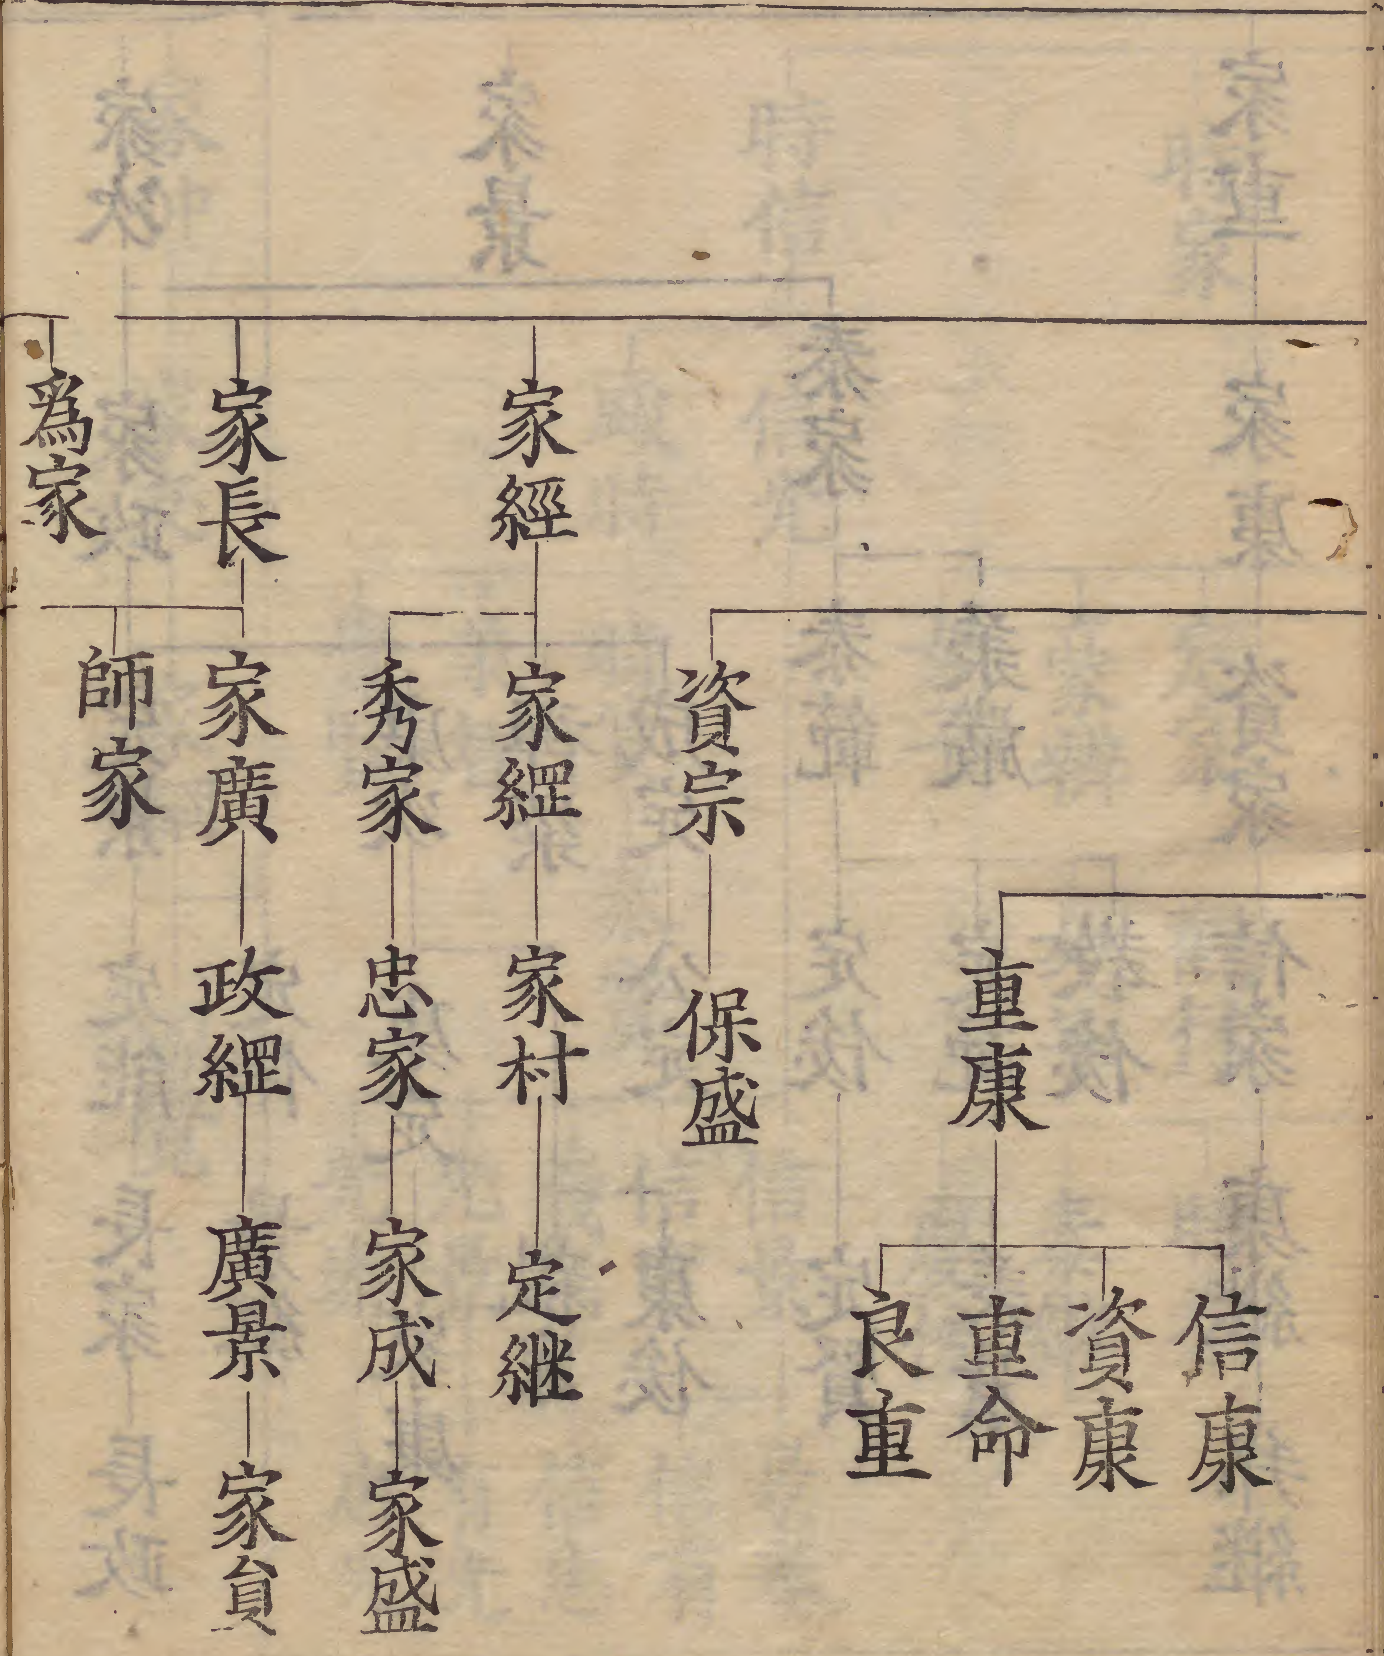 重康
信康
資康
重命
良重
資宗
保盛
家經
家繩
家村
定継
秀家
忠家
家成
家盛
家長
家廣
政繩
廣景
家負
師家
為家